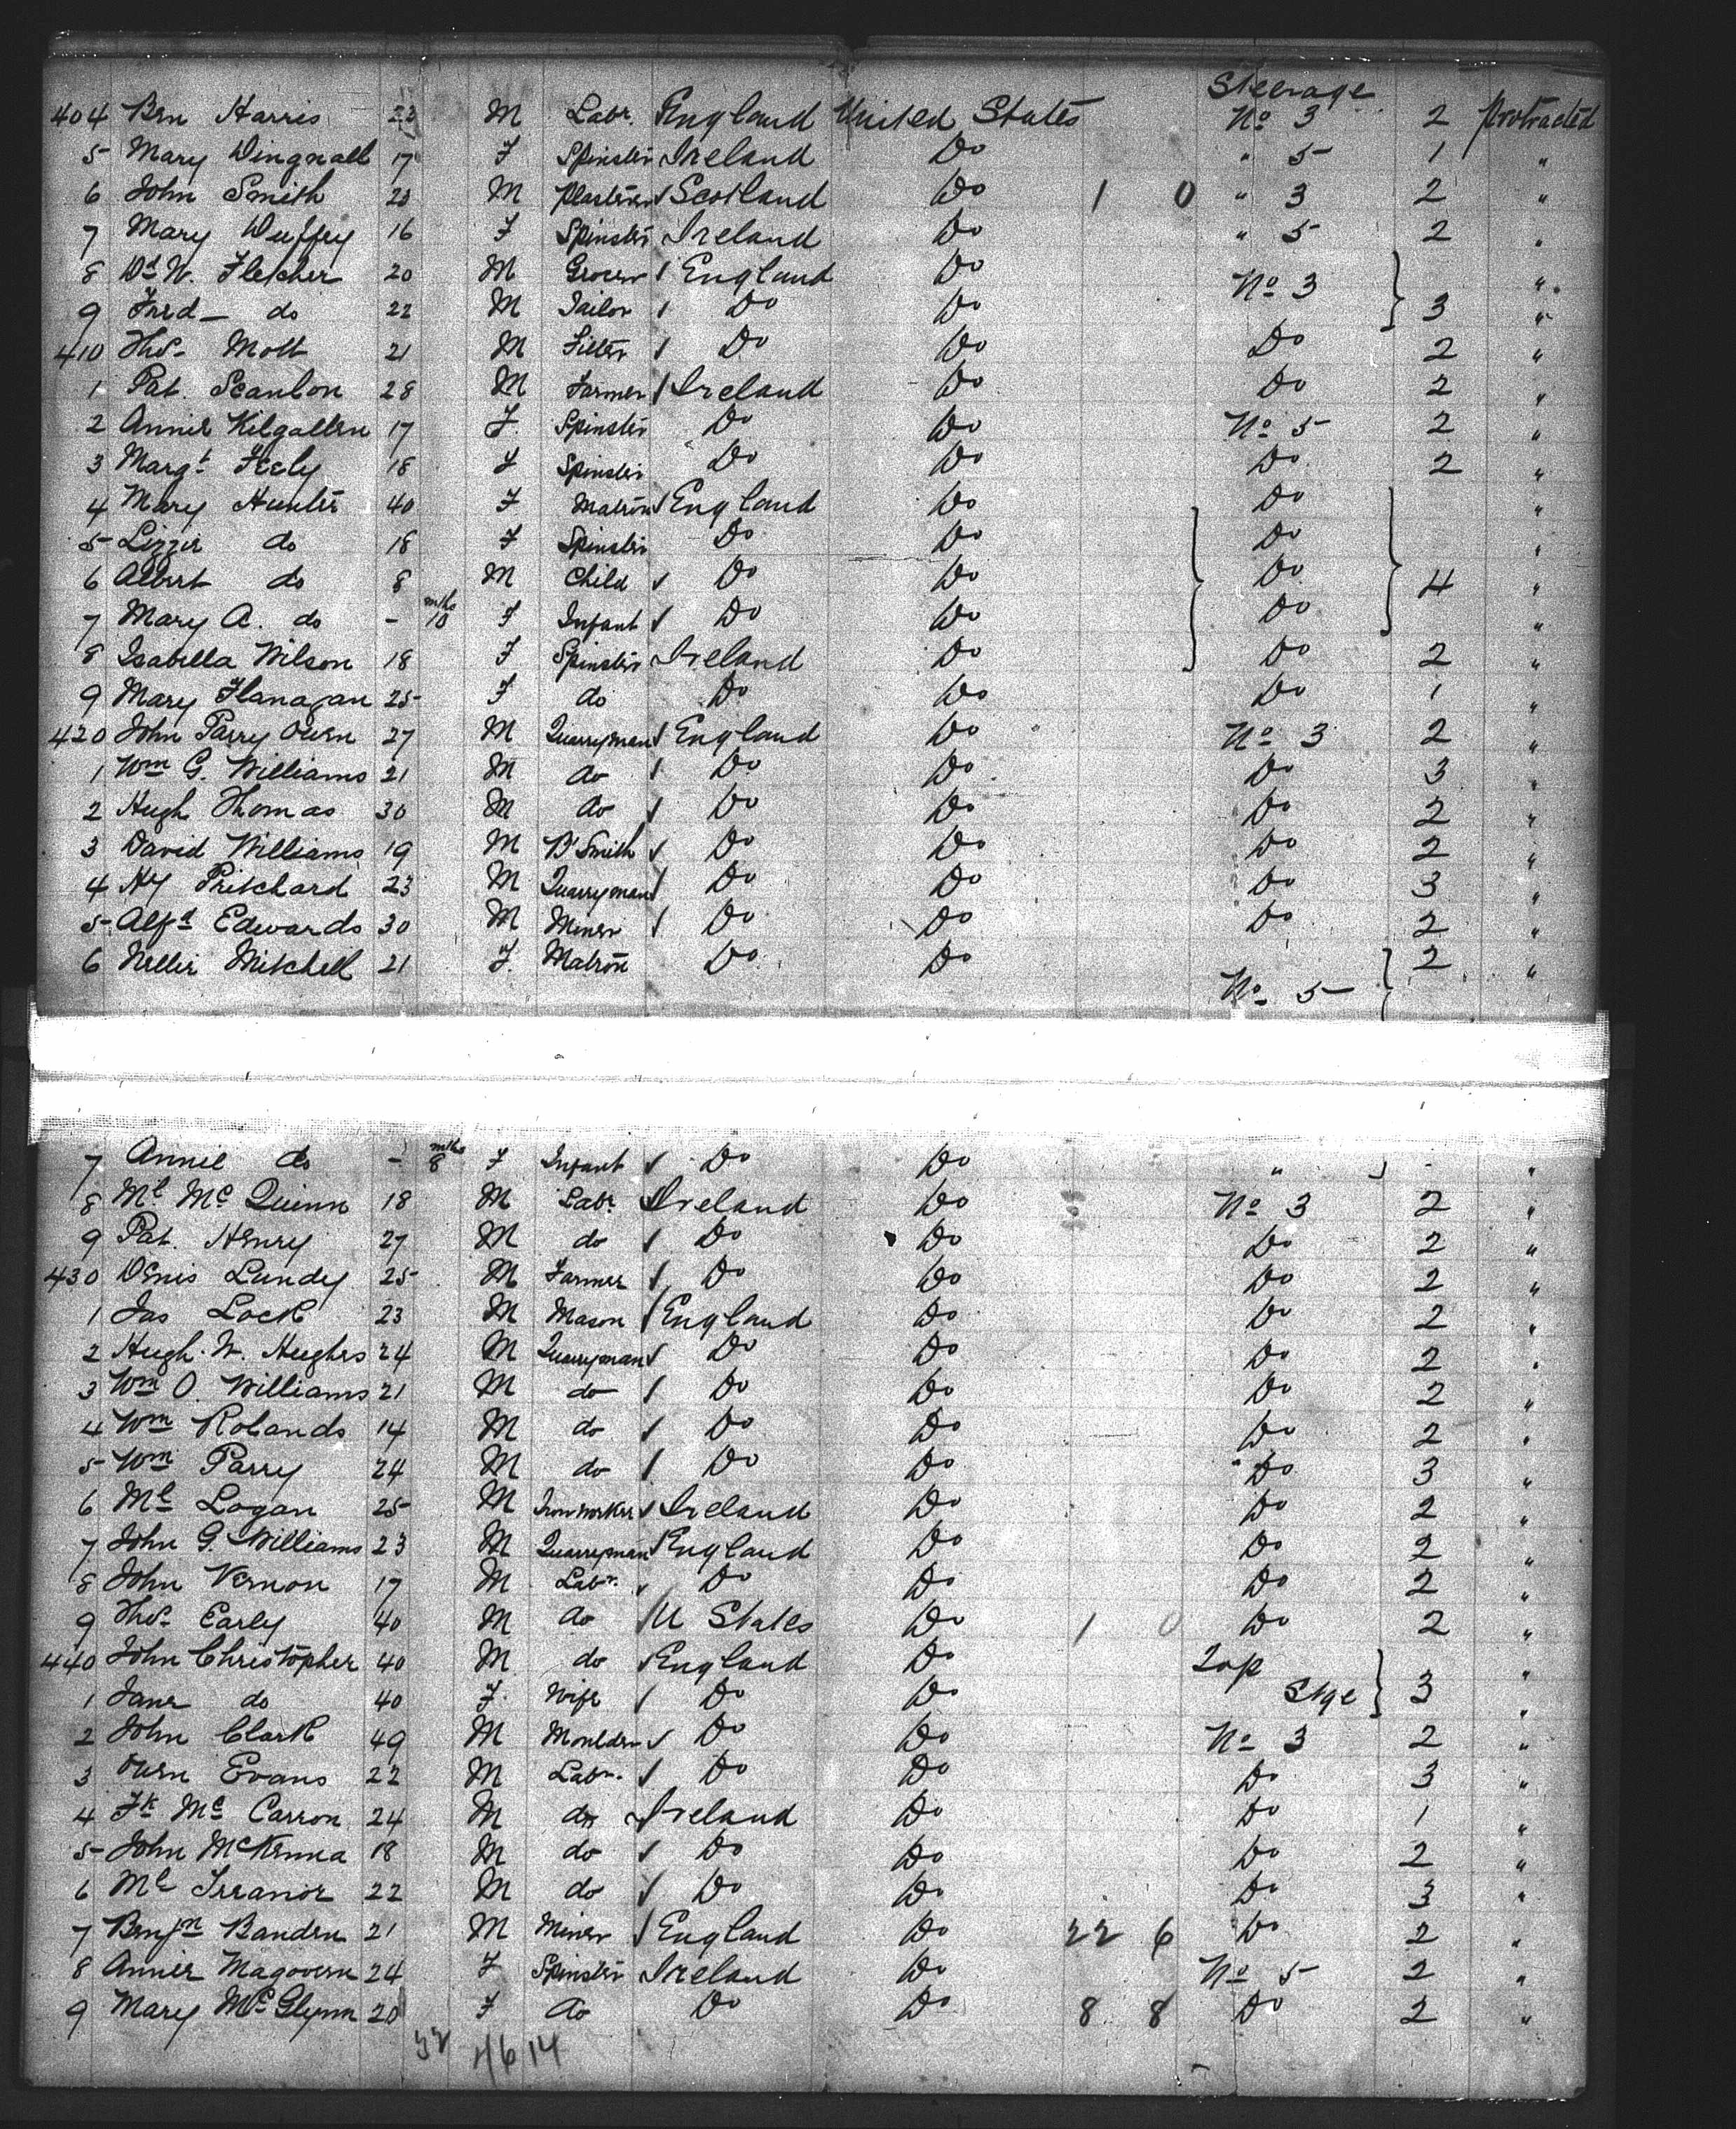 Steerage
404 Ben Harris 23 M Labr. England United States No 3 2 Protracted
5 Mary Dingnall 17 F Spinster Ireland Do " 5 1 "
6 John Smith 20 M Plasterer Scotland Do 1 0 " 3 2 "
7 Mary Duffey 16 F Spinster Ireland Do " 5 2 "
8 Dd W. Fletcher 20 M Grocer England Do No 3 "
9 Fred- do 22 M Tailor Do Do 3 "
410 Thos Mott 21 M Fitter Do Do Do 2 "
1 Pat. Scanlon 28 M Farmer Ireland Do Do 2 "
2 Annie Kilgallen 17 F. Spinster Do Do No 5 2 "
3 Margt Feely 18 F Spinster Do Do Do 2 "
4 Mary Hunter 40 F Matron England Do Do "
5 Lizzie do 18 F Spinster Do Do Do "
6 Albert do 8 M Child Do Do Do 4 "
7 Mary A. do - mths 10 F Infant Do Do Do "
8 Isabella Wilson 18 F Spinster Ireland Do Do 2 "
9 Mary Flanagan 25 F do Do Do Do 1 "
420 John Parry Owen 27 M Quarryman England Do No 3 2 "
1 Wm G. Williams 21 M do Do Do Do 3 "
2 Hugh Thomas 30 M do Do Do Do 2 "
3 David Williams 19 M B'Smith Do Do Do 2 "
4 Hy Pritchard 23 M Quarryman Do Do Do 3 "
5 Alfd Edwards 30 M Miner Do Do Do 2 "
6 Nellie Mitchell 21 F. Matron Do Do No 5 2 "
7 Annie do - mths 8 F Infant Do Do " "
8 Ml Mc Quinn 18 M Labr. Ireland Do No 3 2 "
9 Pat. Henry 27 M do Do Do Do 2 "
430 Denis Lundy 25 M Farmer Do Do Do 2 "
1 Jas Lock 23 M Mason England Do Do 2 "
2 Hugh W. Hughes 24 M Quarryman Do Do Do 2 "
3 Wm O. Williams 21 M do Do Do Do 2 "
4 Wm Rolands 14 M do Do Do Do 2 "
5 Wm Parry 24 M do Do Do Do 3 "
6 Ml Logan 25 M Ironworker Ireland Do Do 2 "
7 John G. Williams 23 M Quarryman England Do Do 2 "
8 John Vernon 17 M Labr. Do Do Do 2 "
9 Thos Earley 40 M do U States Do 1 0 Do 2 "
440 John Christopher 40 M do England Do 2op Stge 3 "
1 Jane do 40 F. Wife Do Do "
2 John Clark 49 M Moulder Do Do No 3 2 "
3 Owen Evans 22 M Labr. Do Do Do 3 "
4 Fk Mc Carron 24 M do Ireland Do Do 1 "
5 John McKenna 18 M do Do Do Do 2 "
6 Ml 22 M do Do Do Do 3 "
7 Benjn Banden 21 M Miner England Do 22 6 Do 2 "
8 Annie Magovern 24 F Spinster Ireland Do No 5 2 "
9 Mary McGlynn 20 F do Do Do 8 8 Do 2 "
32 14